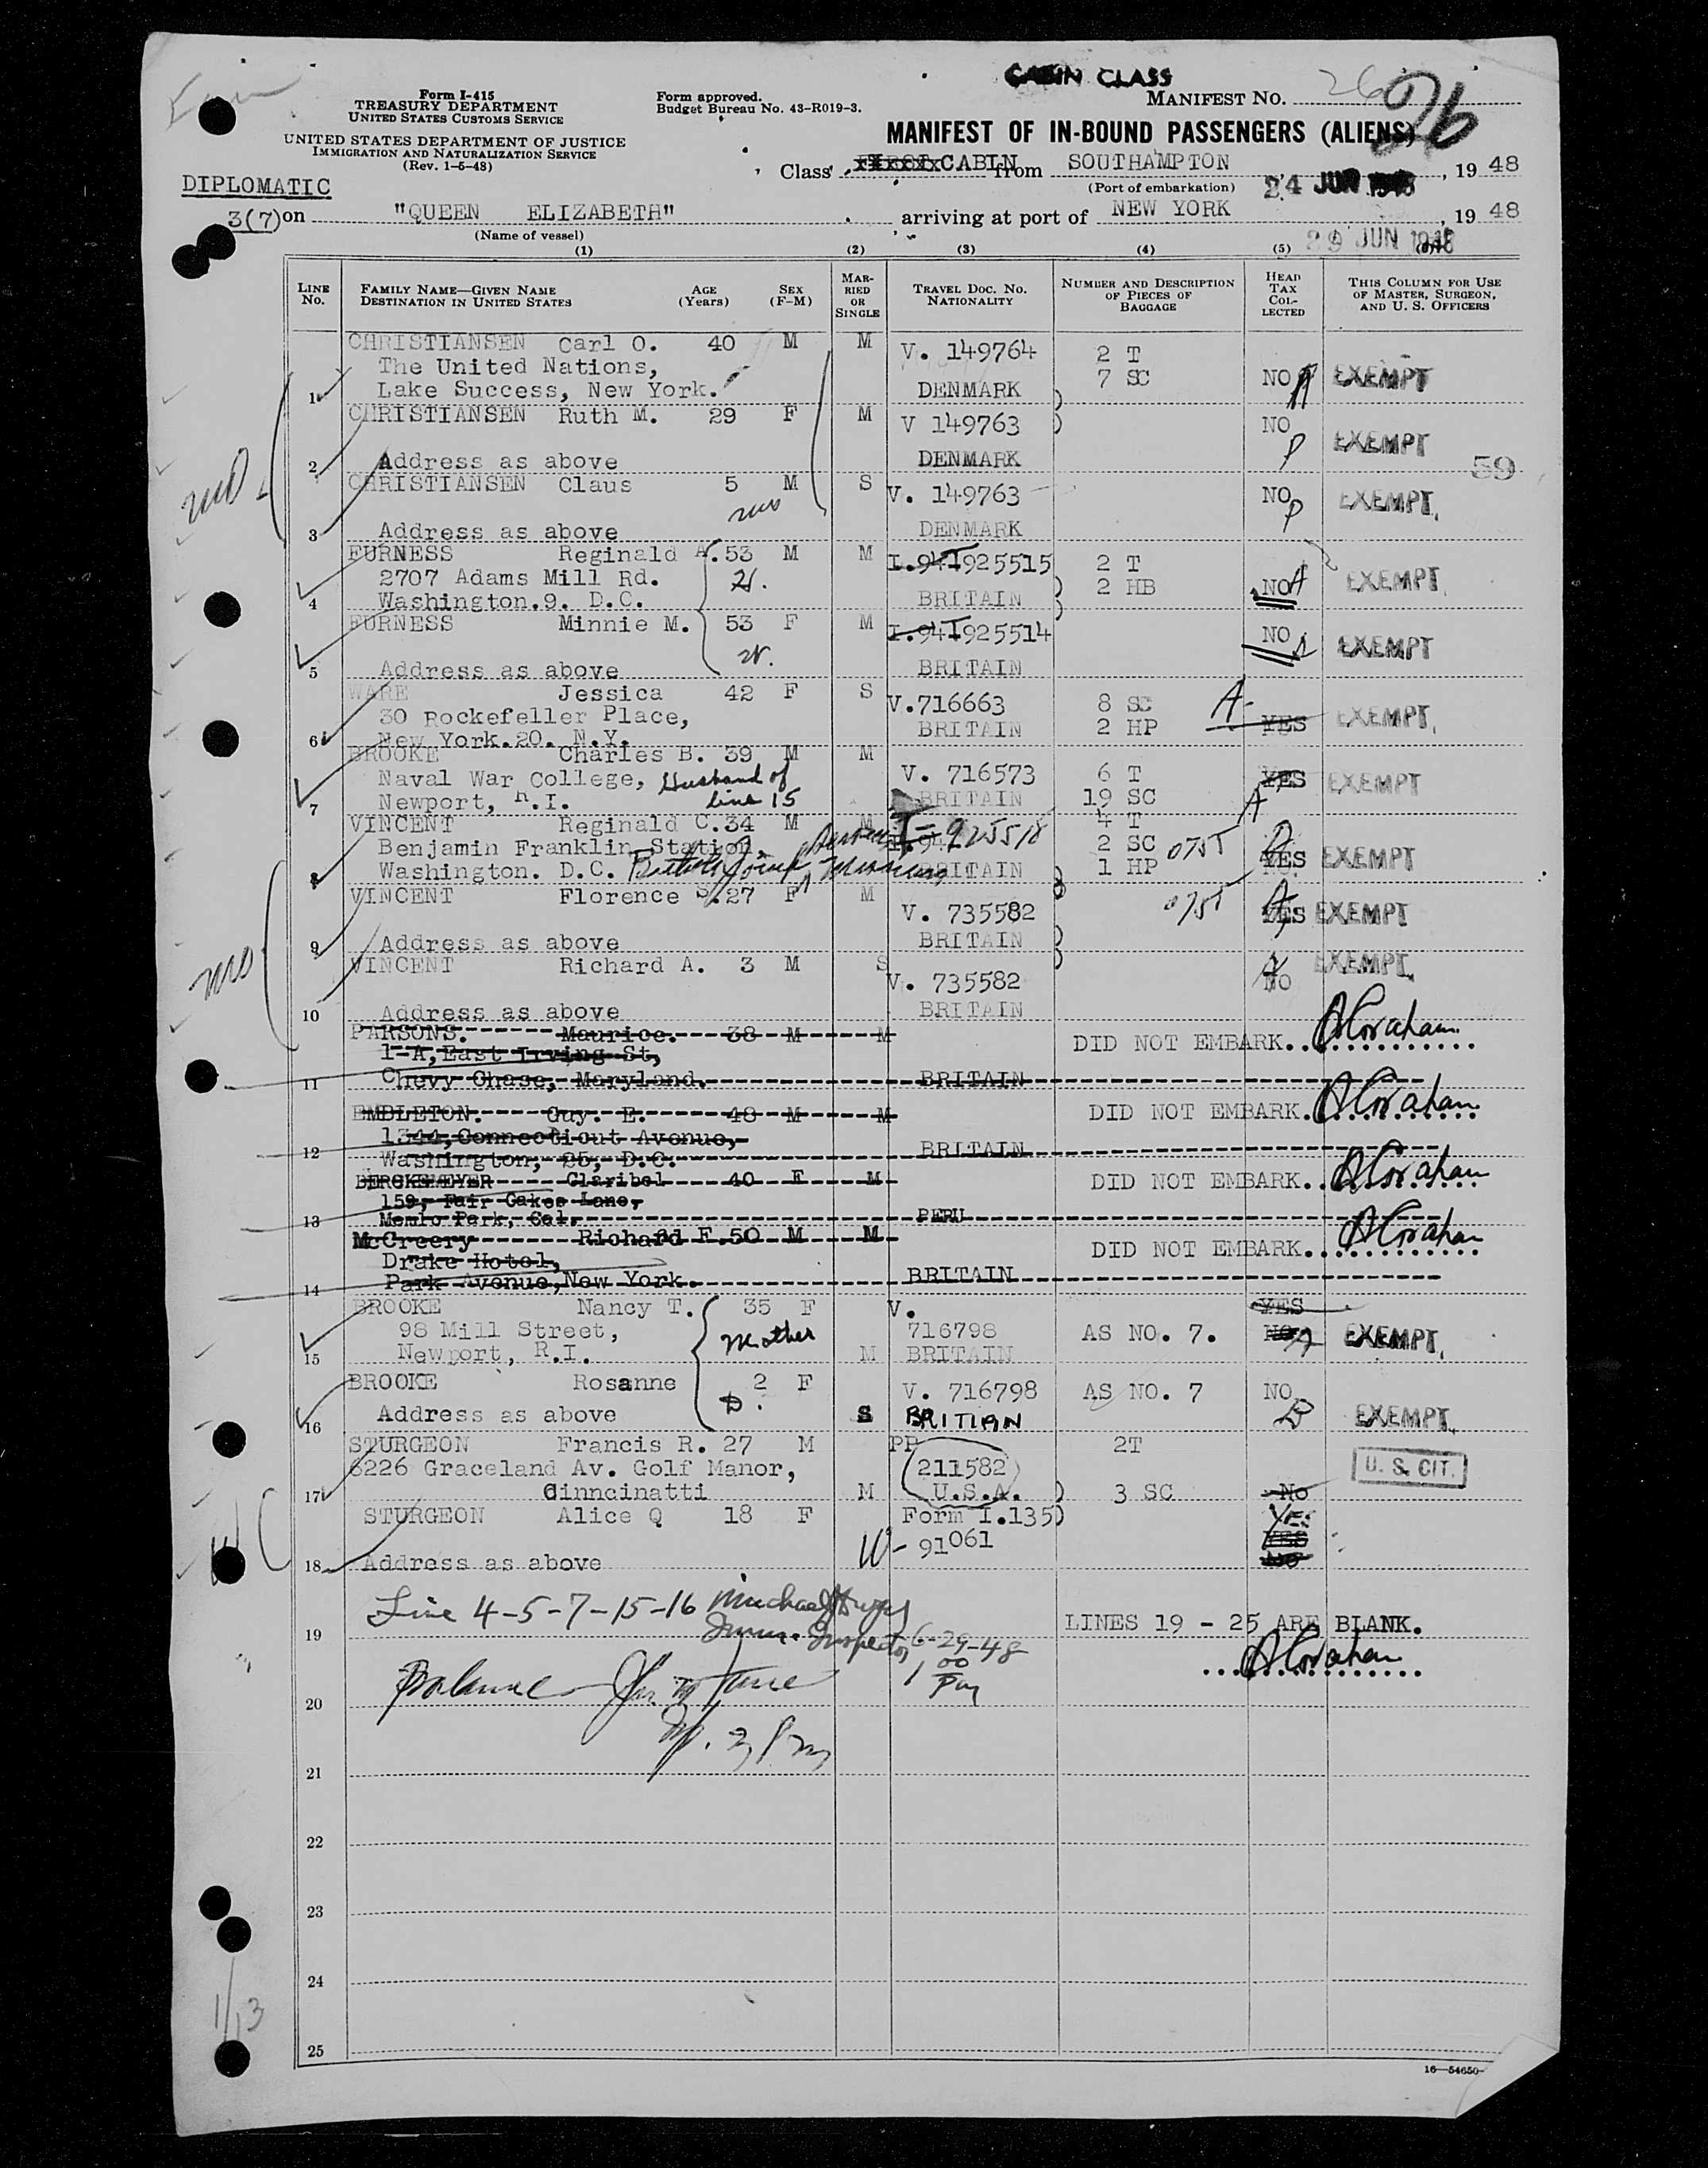 CABIN CLASS
Form I-415
TREASURY DEPARTMENT
UNITED STATES CUSTOMS SERVICE
Form approved.
Budget Bureau No. 43-R019-3.
MANIFEST NO. 26 26
UNITED STATES DEPARTMENT OF JUSTICE
IMMIGRATION AND NATURALIZATION SERVICE
(Rev. 1-5-48)
MANIFEST OF IN-BOUND PASSENGERS (ALIENS)
DIPLOMATIC
Class CABIN from SOUTHAMPTON 24 JUN 1948, 19 48
(Port of embarkation)
3(7) on "QUEEN ELIZABETH" arriving at port of NEW YORK, 19 48
(Name of vessel)
29 JUN 1948
(1) (2) (3) (4) (5) (6)
LINE No.
FAMILY NAME—GIVEN NAME
DESTINATION IN UNITED STATES
AGE (Years)
SEX (F-M)
MARRIED OR SINGLE
TRAVEL DOC. NO. NATIONALITY
NUMBER AND DESCRIPTION OF PIECES OF BAGGAGE
HEAD TAX COLLECTED
THIS COLUMN FOR USE OF MASTER, SURGEON, AND U. S. OFFICERS
CHRISTIANSEN Carl O. 40 M M V. 149764 2 T
The United Nations, 7 SC NO EXEMPT
1 Lake Success, New York. DENMARK
CHRISTIANSEN Ruth M. 29 F M V 149763 NO EXEMPT
2 Address as above DENMARK
59
CHRISTIANSEN Claus 5 M S V. 149763 NO EXEMPT
3 Address as above DENMARK
FURNESS Reginald A. 53 M M I.941925515 2 T
2707 Adams Mill Rd. H. 2 HB NO A EXEMPT
4 Washington.9. D.C. BRITAIN
FURNESS Minnie M. 53 F M I.941925514 NO EXEMPT
W.
5 Address as above BRITAIN
WARE Jessica 42 F S V.716663 8 SC A-
30 Rockefeller Place, BRITAIN 2 HP YES EXEMPT
6 New York.20. N.Y.
BROOKE Charles B. 39 M M
Naval War College, Husband of V. 716573 6 T YES EXEMPT
7 Newport, R.I. line 15 BRITAIN 19 SC A
VINCENT Reginald C. 34 M M I-925518 4 T
Benjamin Franklin Station, 2 SC YES EXEMPT
8 Washington. D.C. BRITAIN 1 HP
VINCENT Florence S. 27 F M V. 735582 YES EXEMPT
9 Address as above BRITAIN
VINCENT Richard A. 3 M S V. 735582 NO EXEMPT
10 Address as above BRITAIN
PARSONS. Maurice. 38 M M DID NOT EMBARK..
1-A, East Irving St,
11 Chevy Chase, Maryland. BRITAIN
EMBLETON. Guy. E. 48 M M DID NOT EMBARK.
1344, Connecticut Avenue,
12 Washington, 25, D.C. BRITAIN
BERCKEMEYER Claribel 40 F M DID NOT EMBARK..
159, Fair Oakes Lane,
13 Menlo Park, Cal. PERU
McCreery Richard F. 50 M M DID NOT EMBARK..
Drake Hotel,
14 Park Avenue, New York. BRITAIN
BROOKE Nancy T. 35 F V. YES
98 Mill Street, Mother 716798 AS NO. 7. NO EXEMPT
15 Newport, R.I. M BRITAIN
BROOKE Rosanne 2 F V. 716798 AS NO. 7 NO
D.
16 Address as above S BRITIAN EXEMPT
STURGEON Francis R. 27 M PP 2T
6226 Graceland Av. Golf Manor, 211582 U. S. CIT.
17 Cinncinatti M U.S.A. 3 SC No
STURGEON Alice Q 18 F Form I.135 YES
W- 91061 YES
18 Address as above NO
Line 4-5-7-15-16
19 Immn. Inspector 6-29-48 LINES 19 - 25 ARE BLANK.
1 00 Pm
Balance
20
21
22
23
24
1/13
25
16—54650-